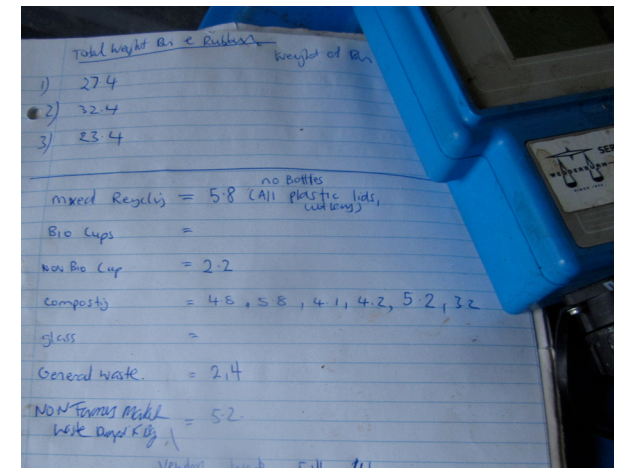 Total Weight Bin & Rubbish
Weight of Bin
1) 27.4
2) 32.4
3) 23.4
no Bottles
mixed Recyclig = 5.8 (All plastic lids,
cutlery)
Bio Cups =
Non Bio Cup = 2.2
Compostig = 4.8, 5.8, 4.1, 4.2, 5.2, 3.2
glass =
General waste. = 2.4
NON Farmers Market = 5.2
Waste
Vendor
SER
SINCE